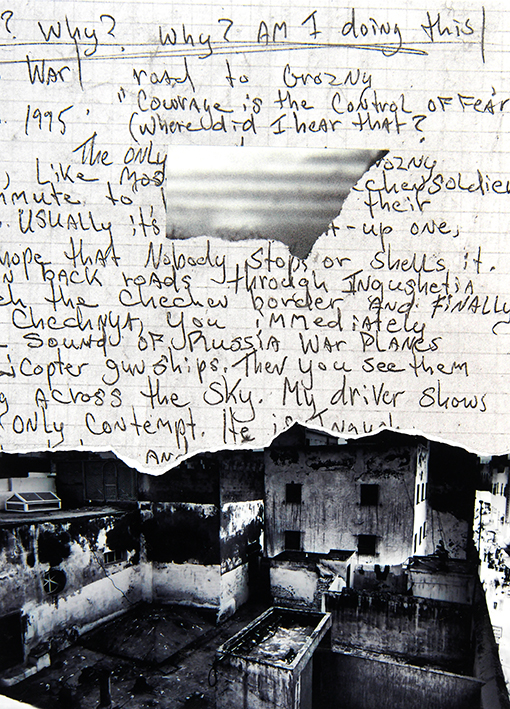 ? Why? Why? AM I doing this
WAR road to Grozny
"Courage is the control of Fear
1995 (Where did I hear that?
The only
, Like Mos
mmute to their
USUALLY it's t-up one,
hope that Nobody stops or shells it.
back roads through Ingushetia
the Chechen border AND FINALLY
Chechnya, you immediately
Sound of Russia WAR PLANES
copter gunships. Then you see them
ACROSS the Sky. My driver shows
ONLY Contempt. He is
AN